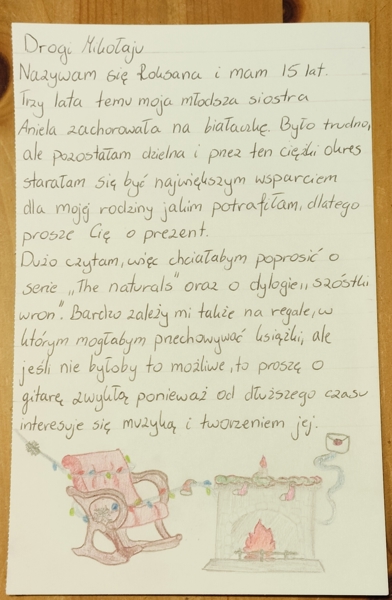 Drogi Mikołaju
Nazywam się Roksana i mam 15 lat.
Trzy lata temu moja młodsza siostra
Aniela zachorowała na białaczkę. Było trudno,
ale pozostałam dzielna i przez ten ciężki okres
starałam się być największym wsparciem
dla mojej rodziny jakim potrafiłam, dlatego
proszę Cię o prezent.
Dużo czytam, więc chciałabym poprosić o
serie „The naturals" oraz o dylogie „szóstki
wron". Bardzo zależy mi także na regale, w
którym mogłabym przechowywać książki, ale
jeśli nie byłoby to możliwe, to proszę o
gitarę zwykłą ponieważ od dłuższego czasu
interesuje się muzyką i tworzeniem jej.